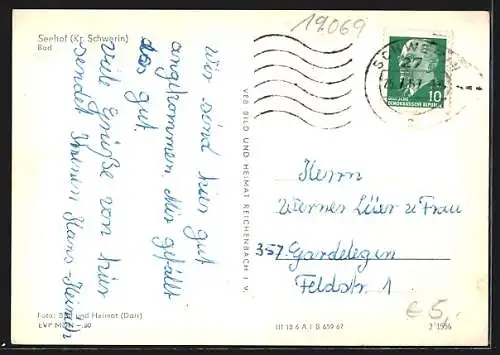 19.069
Seehof (Kr. Schwerin)
Bad
Wir sind hier gut
angekommen. Mir gefällt
das gut.
Viele Grüße von hier
sendet Ihnen Hans-Heiner
VEB BILD UND HEIMAT REICHENBACH I. V.
27
10
DEUTSCHE DEMOKRATISCHE REPUBLIK
Herrn
Werner Lüer u Frau
357 Gardelegen
Feldstr. 1
€ 5,-
Foto: Bild und Heimat (Darr)
III 18 6 A 1 B 659 67
2 1956